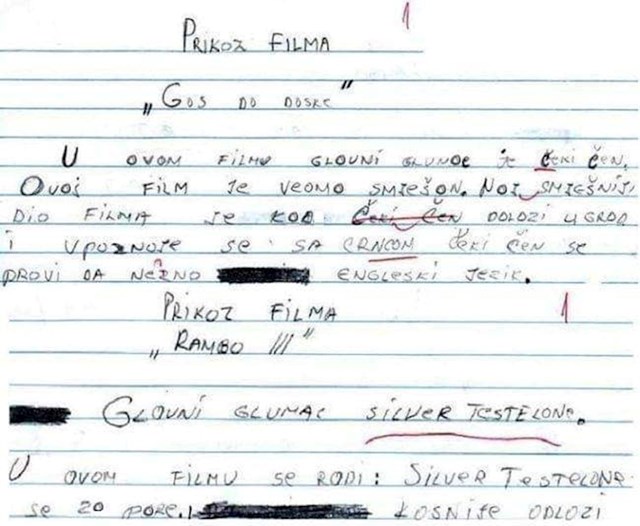 1
PRIKOZ FILMA
„GOS DO DOSKE”
U OVOM FILMU GLOVNI GLUMOC JE ČEKI ČEN,
OVOJ FILM JE VEOMO SMIEŠON. NOJ SMIEŠNIJI
DIO FILMA JE KOD ČEKI ČEN DOLOZI U GROD
I UPOZNOJE SE SA CRNCOM ČEKI ČEN SE
PROVI DA NEZNO ENGLESKI JEZIK.
PRIKOZ FILMA 1
„RAMBO III”
GLOVNI GLUMAC SILVER TESTELONE.
U OVOM FILMU SE RODI: SILVER TESTELONE
SE 20 PORE. KOSNIJE ODLOZI